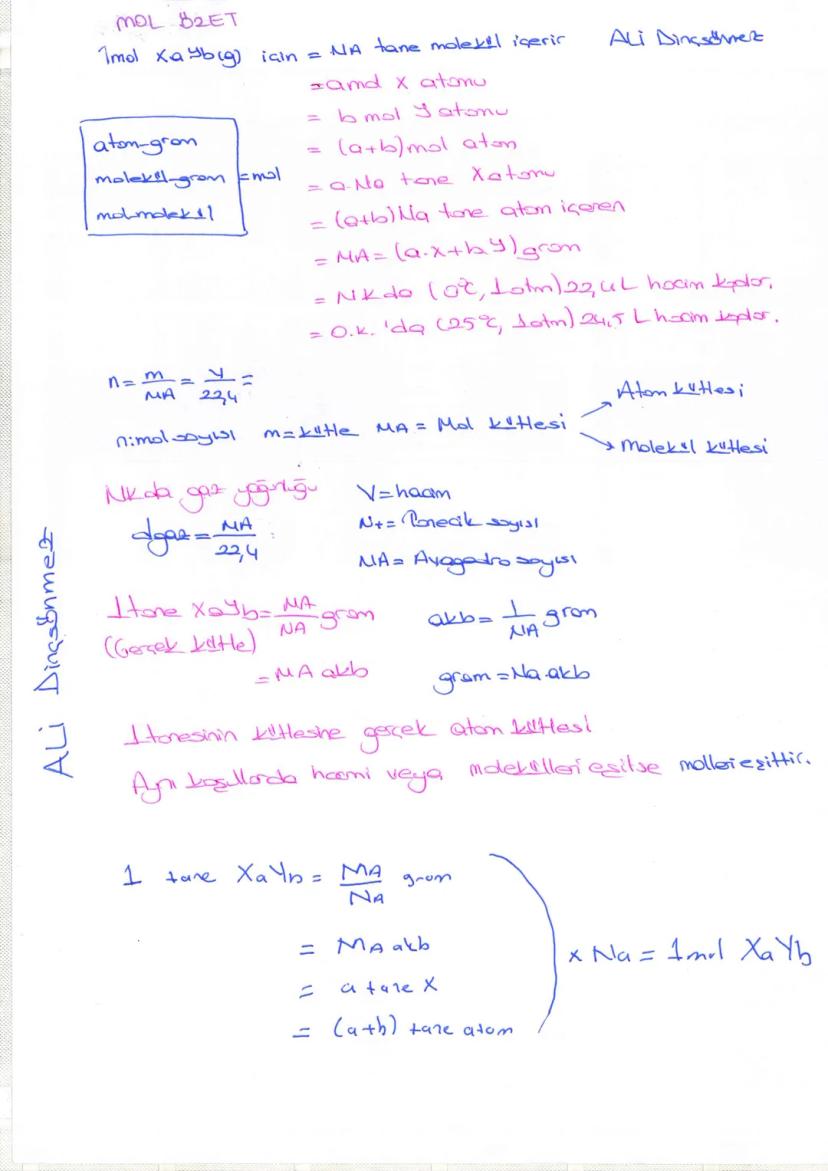 MOL ÖZET
1mol XaYb(g) için = NA tane molekül içerir ALİ Dinçsönmez
= amol X atomu
= b mol Y atomu
= (a+b)mol atom
= a.Na tane X atomu
= (a+b)Na tane atom içeren
= MA= (a.x+b.y)gram
= NKda (0°C, 1atm) 22,4L hacim kaplar.
= O.k. 'da (25°C, 1atm) 24,5 L hacim kaplar.
atom-gram
molekül-gram = mol
molmolekül
n = m/MA = V/22,4 =
n:mol sayısı m=kütle MA = Mol kütlesi
Atom kütlesi
Molekül kütlesi
NKda gaz yoğunluğu
dgaz = MA/22,4
V=hacim
N+= Tanecik sayısı
NA= Avagadro sayısı
1tane XaYb= MA/NA gram
(Gerçek kütle)
= MA akb
akb= 1/NA gram
gram = Na.akb
1tanesinin kütlesine gerçek atom kütlesi
Aynı koşullarda hacmi veya molekülleri eşitse molleri eşittir.
ALİ Dinçsönmez
1 tane XaYb = MA/NA gram
= MA akb
= a tane X
= (a+b) tane atom
x Na = 1mol XaYb